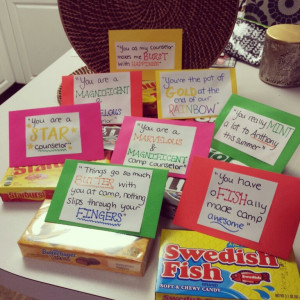 "You as my counselor
makes me BURST
with
"You are a
MAGNIFICENT
"You're the pot of
GOLD at the
end of our
RAINBOW"
"You are a
STAR
counselor"
"You are a
MARVELOUS
&
MAGNIFICENT
camp counselor"
"You really MINT
a lot to Anthony
this summer"
"Things go so much
BUTTER with
you at camp, nothing
slips through your
FINGERS"
"You have
oFISHally
made camp
awesome"
Starburst
Butterfinger
Swedish
Fish
SOFT & CHEWY CANDY